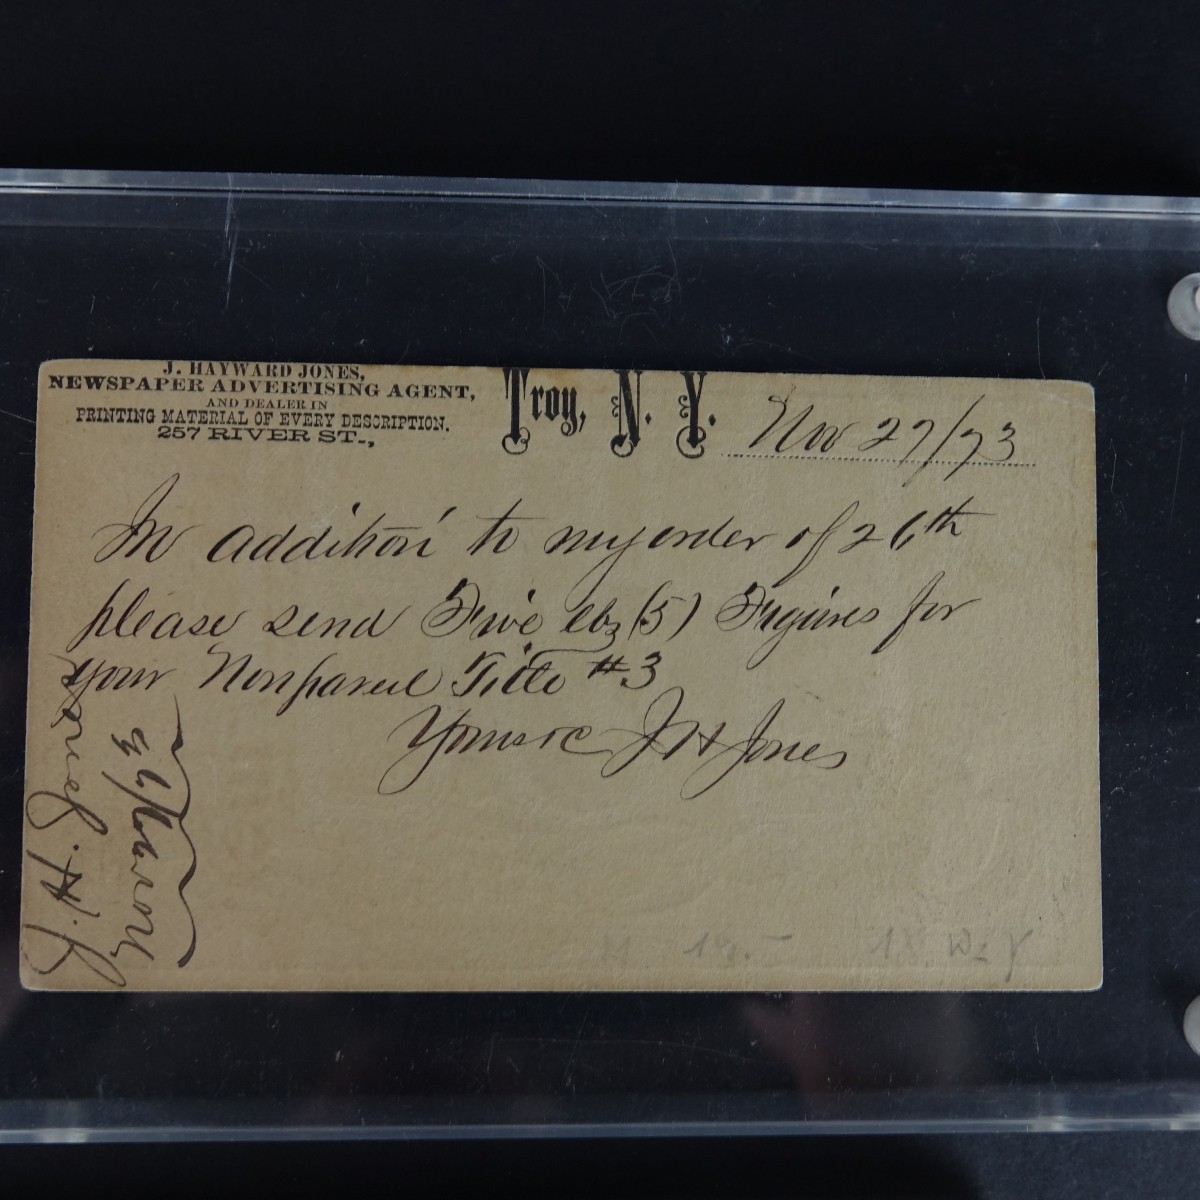 J. HAYWARD JONES,
NEWSPAPER ADVERTISING AGENT,
AND DEALER IN
PRINTING MATERIAL OF EVERY DESCRIPTION.
257 RIVER ST.,
Troy, N. Y. Nov 27/73
In addition to my order of 26th
please send Five lbs (5) Figures for
your Nonpareil Title #3
Yours &c J H Jones
J. H. Jones